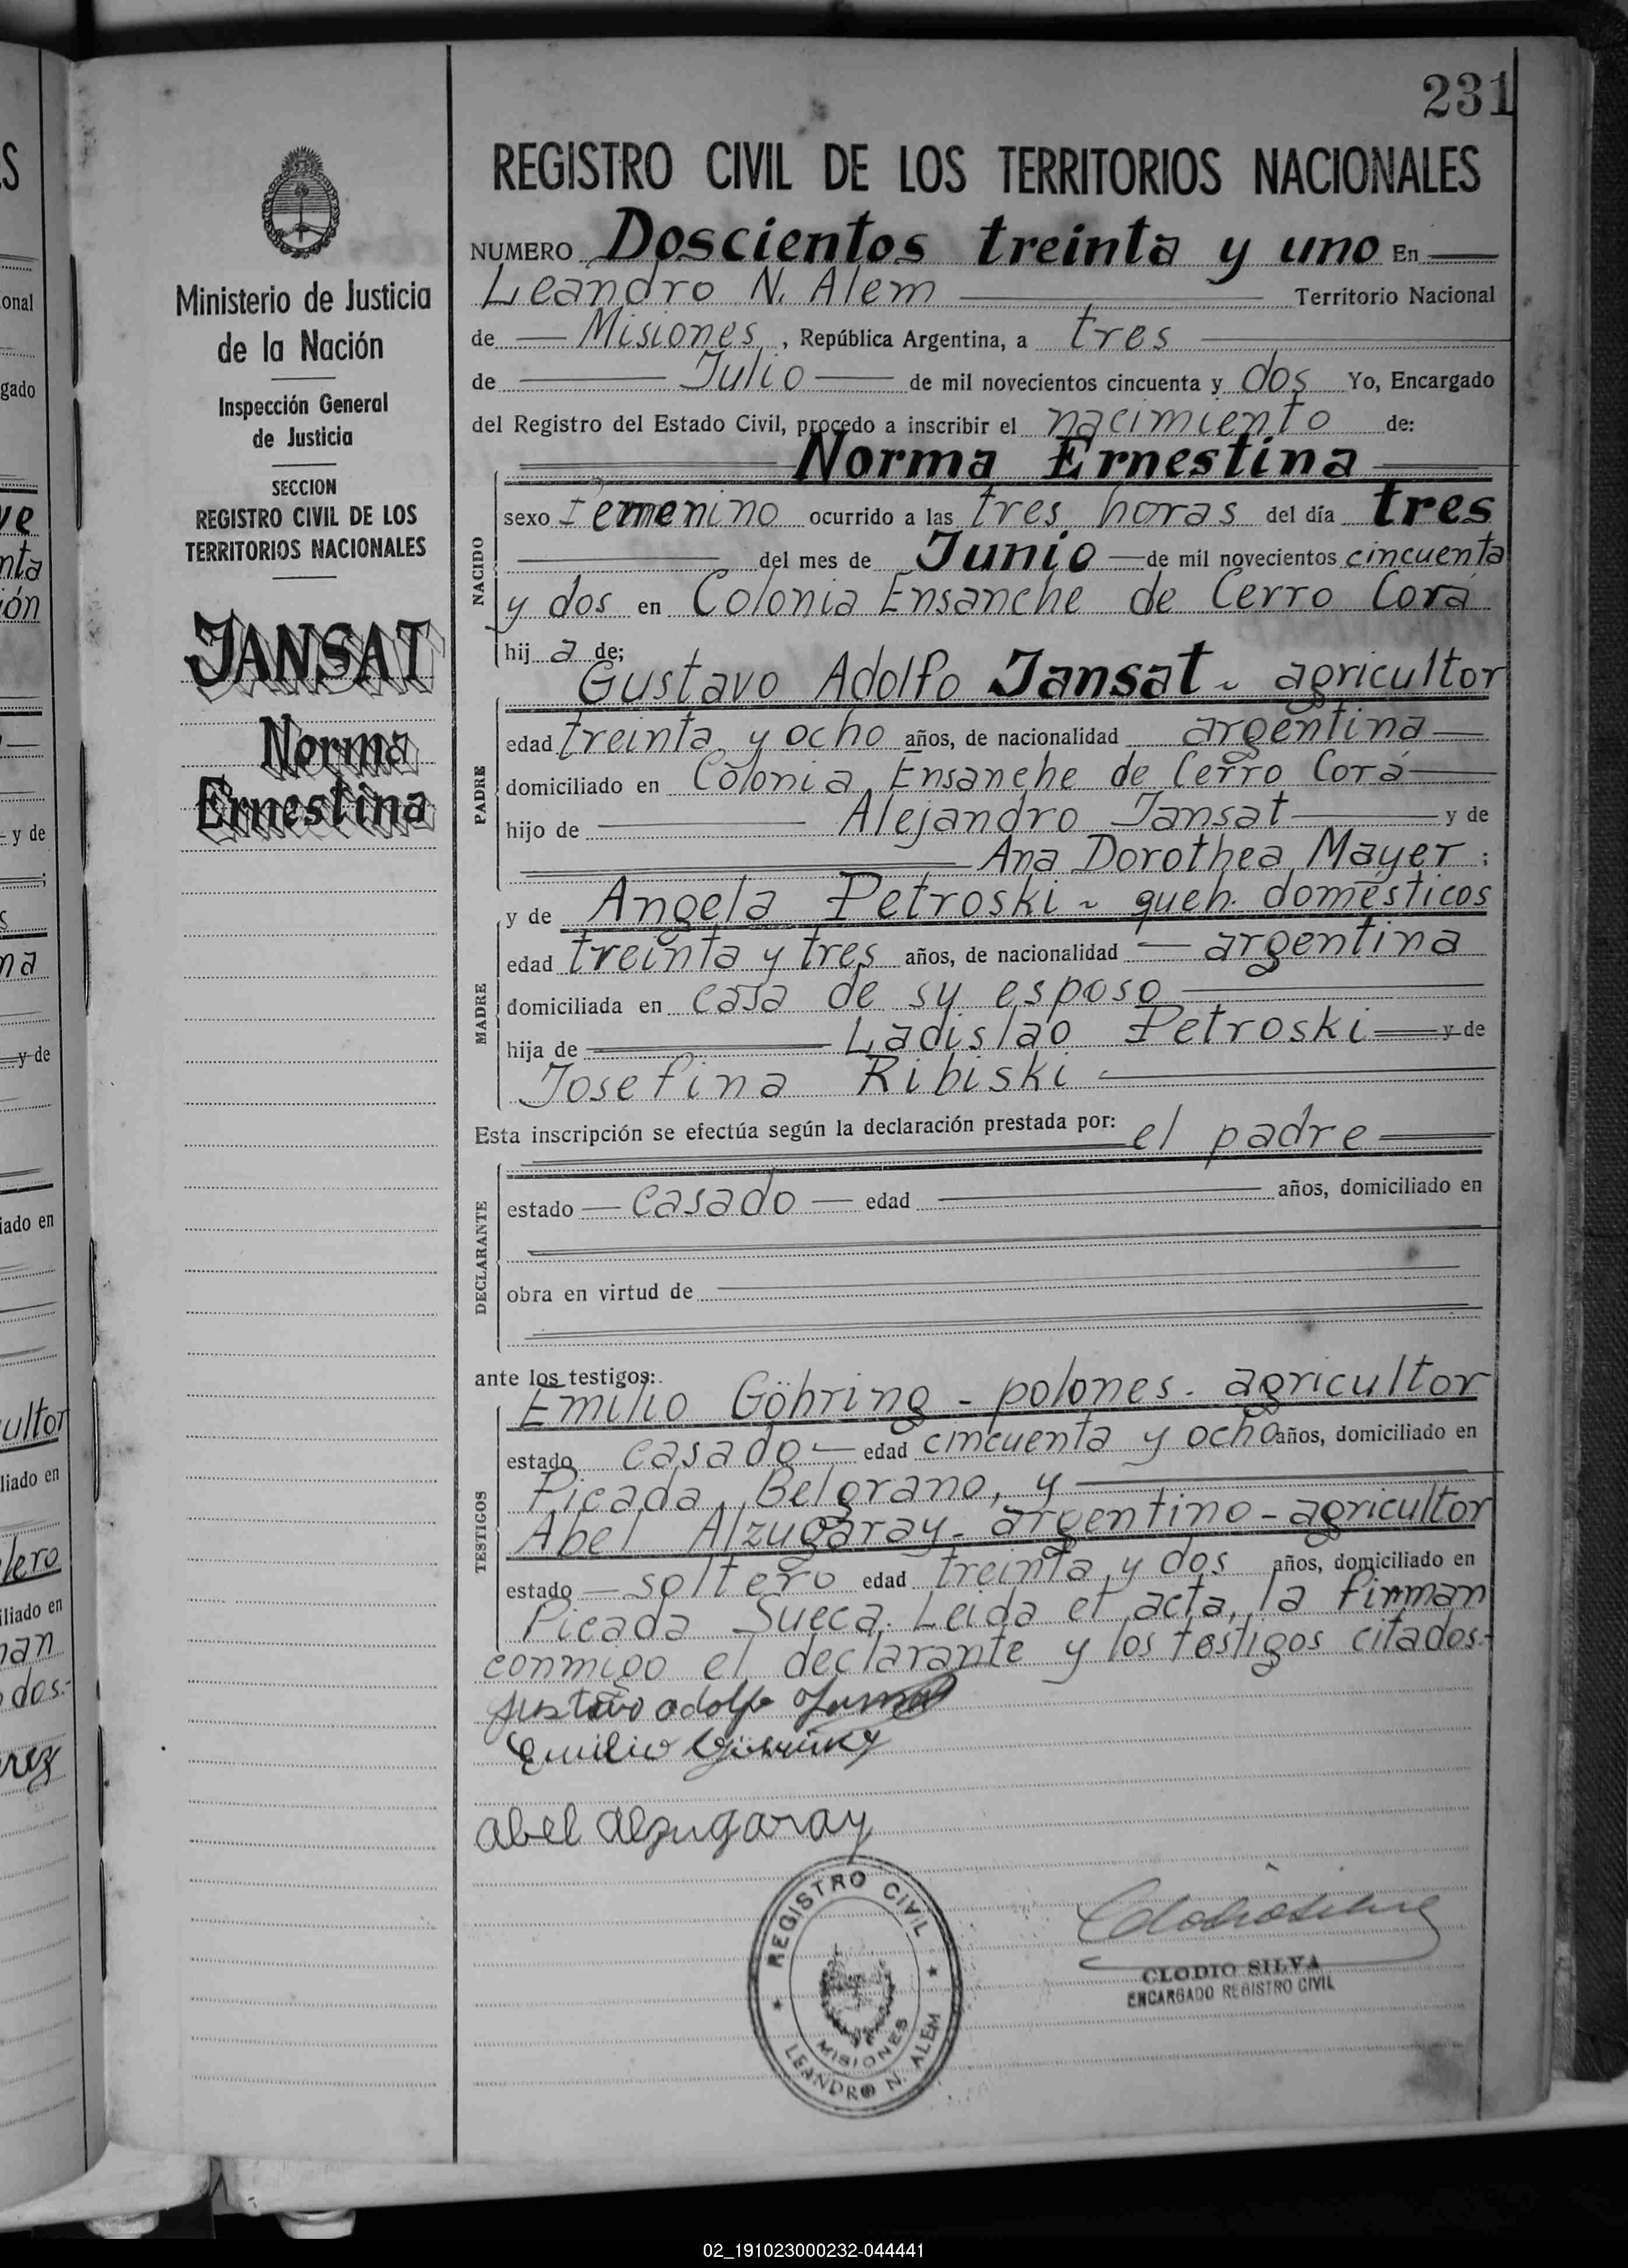 231
REGISTRO CIVIL DE LOS TERRITORIOS NACIONALES
NUMERO Doscientos treinta y uno En
Leandro N. Alem Territorio Nacional
de Misiones, República Argentina, a tres
de Julio de mil novecientos cincuenta y dos Yo, Encargado
del Registro del Estado Civil, procedo a inscribir el nacimiento de:
Norma Ernestina
NACIDO
sexo Femenino ocurrido a las tres horas del día tres
del mes de Junio de mil novecientos cincuenta
y dos en Colonia Ensanche de Cerro Corá
hij a de;
Gustavo Adolfo Jansat ~ agricultor
PADRE
edad treinta y ocho años, de nacionalidad argentina
domiciliado en Colonia Ensanche de Cerro Corá
hijo de Alejandro Jansat y de
Ana Dorothea Mayer;
y de Angela Petroski ~ queh. domésticos
MADRE
edad treinta y tres años, de nacionalidad argentina
domiciliada en casa de su esposo
hija de Ladislao Petroski y de
Josefina Ribiski
Esta inscripción se efectúa según la declaración prestada por: el padre
DECLARANTE
estado casado edad años, domiciliado en
obra en virtud de
ante los testigos:
TESTIGOS
Emilio Göhring - polones. agricultor
estado casado edad cincuenta y ocho años, domiciliado en
Picada Belgrano, y
Abel Alzugaray - argentino - agricultor
estado soltero edad treinta y dos años, domiciliado en
Picada Sueca. Leida el acta, la firman
conmigo el declarante y los testigos citados.-
Gustavo Adolfo Jansat
Emilio Göhring
Abel Alzugaray
REGISTRO CIVIL
MISIONES
LEANDRO N. ALEM
CLODIO SILVA
ENCARGADO REGISTRO CIVIL
Ministerio de Justicia
de la Nación
Inspección General
de Justicia
SECCION
REGISTRO CIVIL DE LOS
TERRITORIOS NACIONALES
JANSAT
Norma
Ernestina
onal
gado
y de
y de
iado en
ultor
liado en
iliado en
02_191023000232-044441